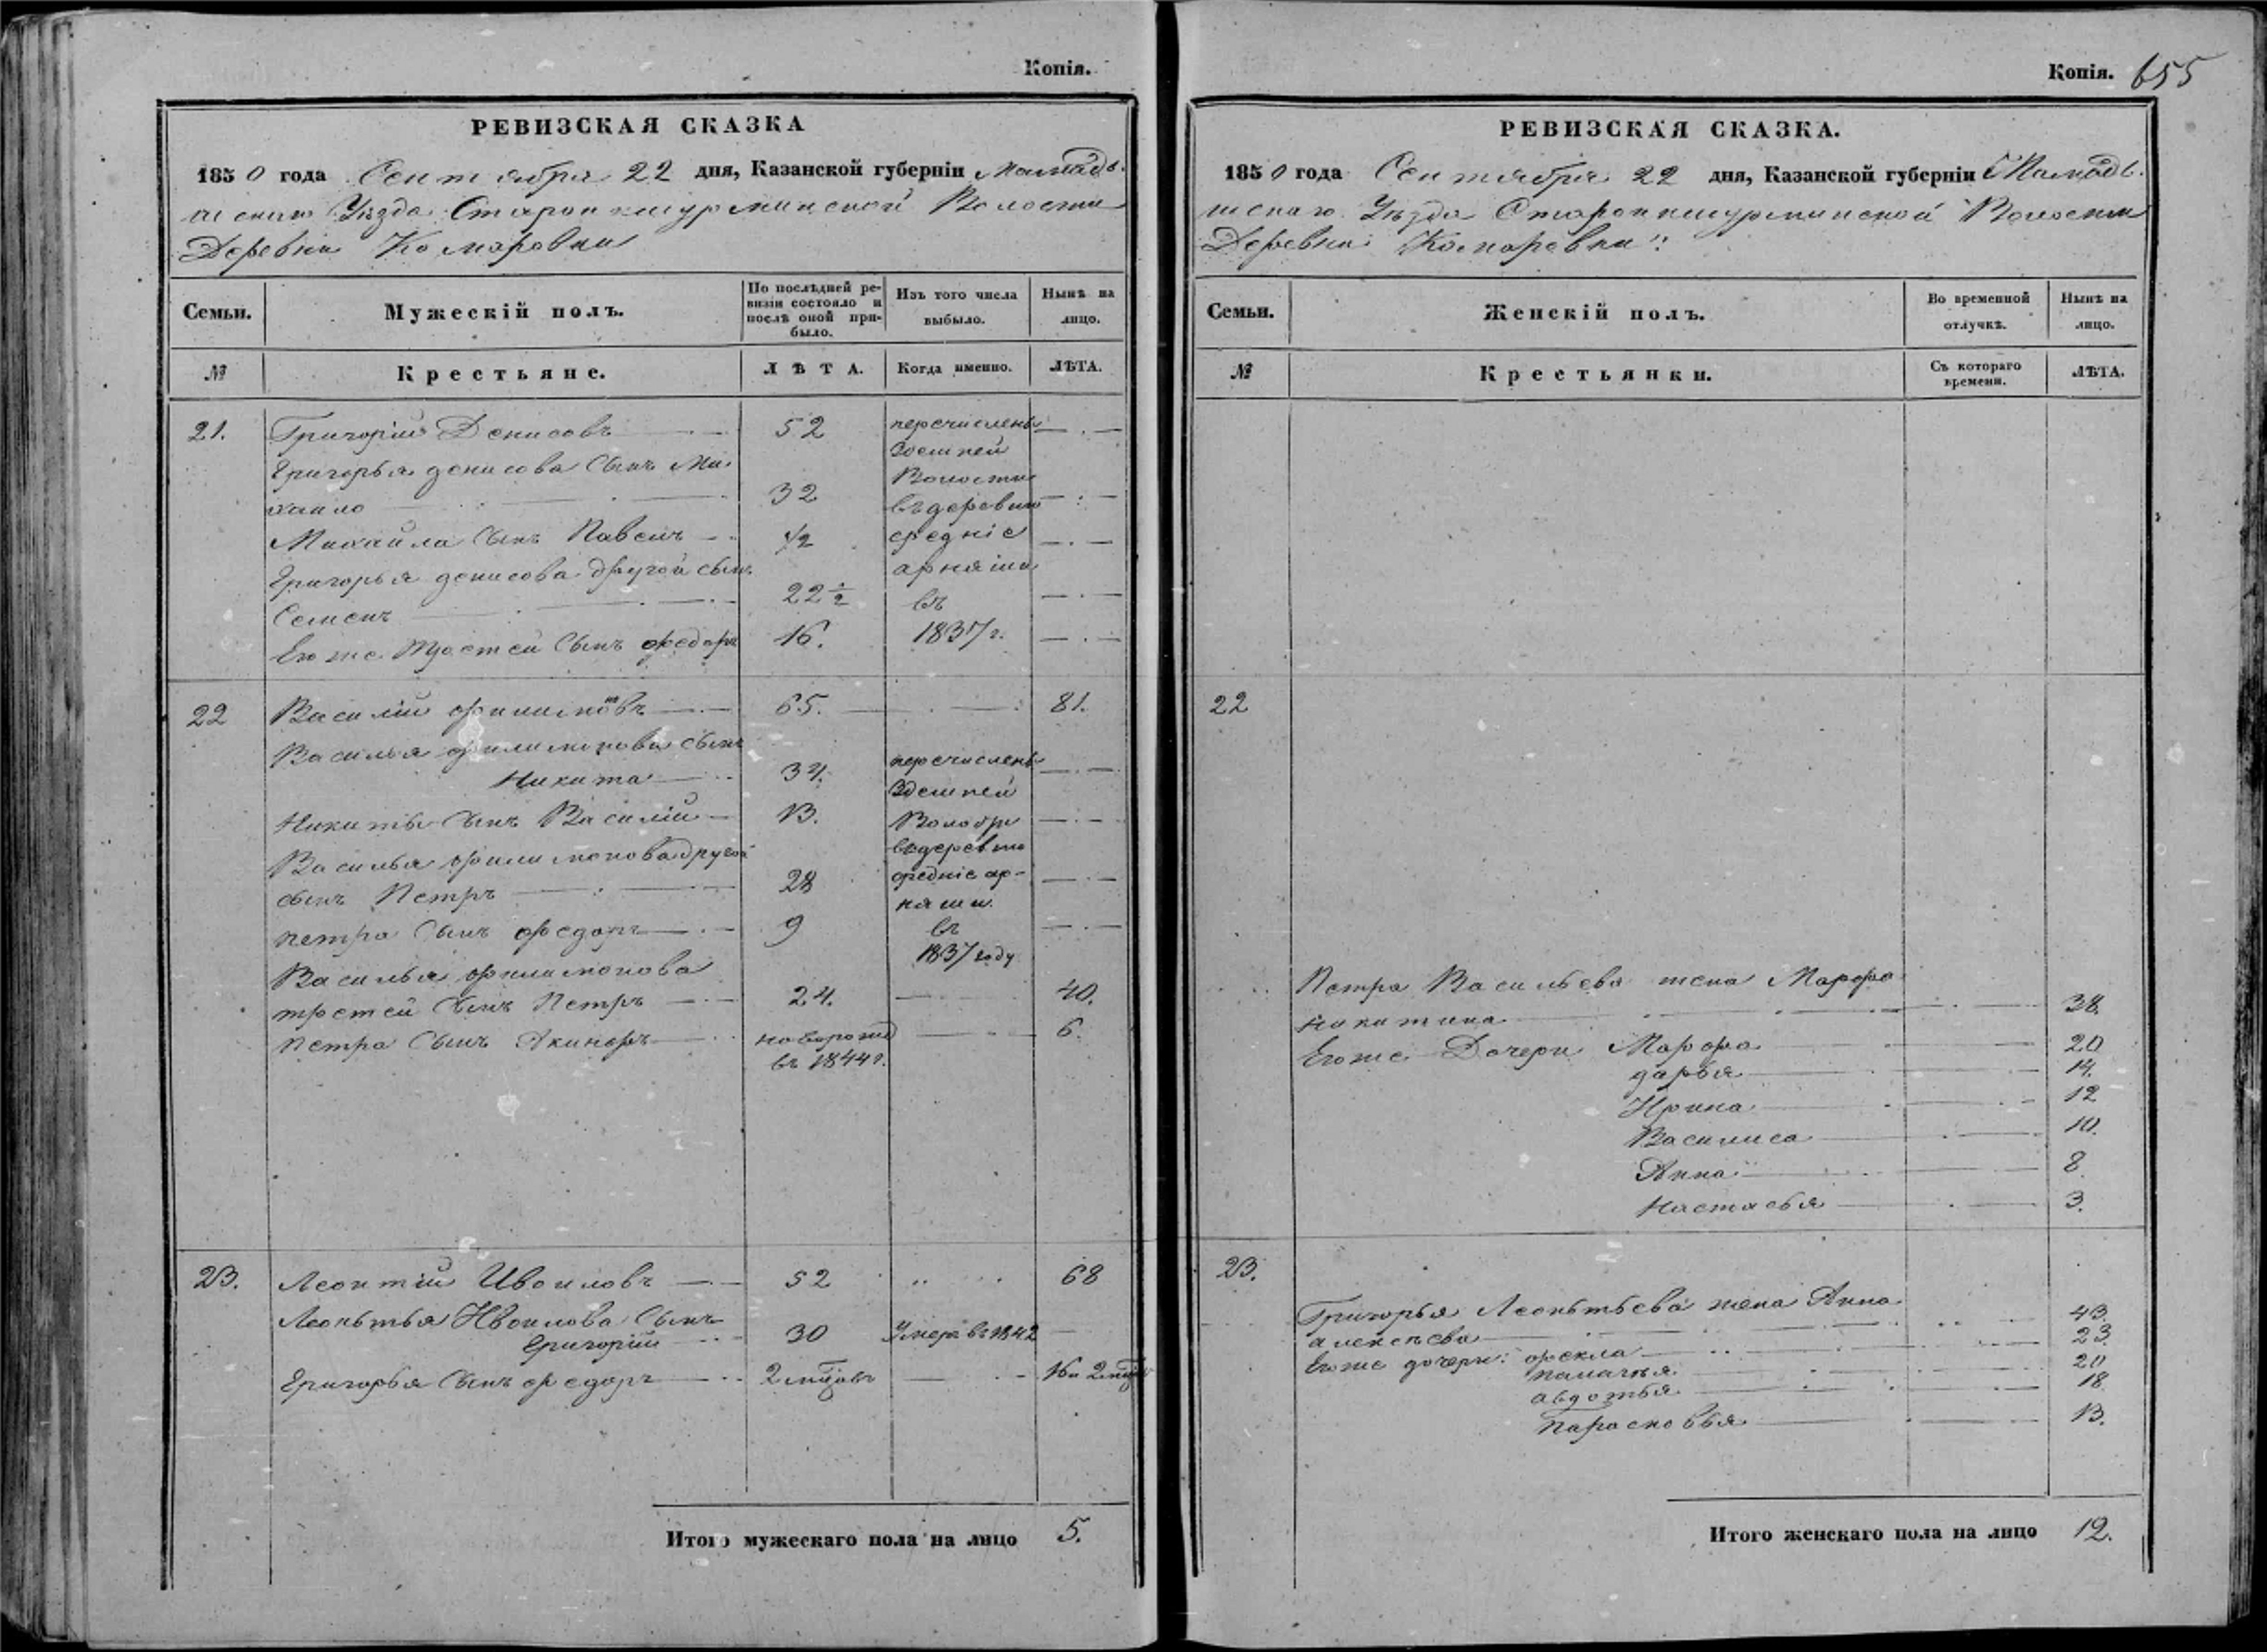 Копія.
РЕВИЗСКАЯ СКАЗКА
1850 года Сентября 22 дня, Казанской губерніи Мамады-
шскаго Уезда Старои кшурминской Волости
Деревни Комаровки
Семьи.
Мужескій полъ.
По послѣдней ре-
визіи состояло и
послѣ оной при-
было.
Изъ того числа
выбыло.
Нынѣ на
лицо.
№
Крестьяне.
ЛѢТА.
Когда именно.
ЛѢТА.
21. Григорій Денисовъ 52 перечислены
здешней
Григорья денисова Сынъ Ми- Волости
хаило 32 въ деревню
Михайла Сынъ Павелъ 1/2 средніе
Григорья денисова другой сынъ арняши
Семенъ 22 1/2 въ
Егоже Третей Сынъ федоръ 16. 1837 г.
22 Василій филимоновъ 65. 81.
Василья филимонова сынъ перечислены
Никита 34. здешней
Никиты Сынъ Василій 13. Волости
Василья филимонова другой въ деревню
сынъ Петръ 28 средніе ар-
няши.
петра Сынъ федоръ 9 въ
1837 году
Василья филимонова
третей Сынъ Петръ 24. 40.
петра Сынъ новорожд 6.
въ 1844 г.
23. Леонтій Ивоиловъ 52 68
Леонтья Ивоилова Сынъ
Григорій 30 Умеръ въ 1842
Григорья Сынъ федоръ 2 мцовъ 16 и 2 мцов
Итого мужескаго пола на лицо 5.
Копія. 655
РЕВИЗСКАЯ СКАЗКА.
1850 года Сентября 22 дня, Казанской губерніи Мамады-
шскаго Уезда Старои кшурминской Волости
Деревни Комаровки
Семьи.
Женскій полъ.
Во временной
отлучкѣ.
Нынѣ на
лицо.
№
Крестьянки.
Съ котораго
времени.
ЛѢТА.
22
Петра Васильева жена Марфа
Никитина 38.
Егоже Дочери Марфа 20
дарья 14.
Ирина 12
Василиса 10.
Анна 8
Настасья 3.
23.
Григорья Леонтьева жена Анна
алексѣева 43.
Егоже дочери: фекла 23.
20
авдотья 18
Парасковья 13.
Итого женскаго пола на лицо 12.